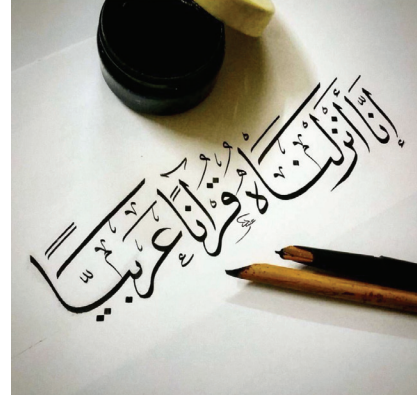 إِنَّا أَنزَلْنَاهُ قُرْآنًا عَرَبِيًّا